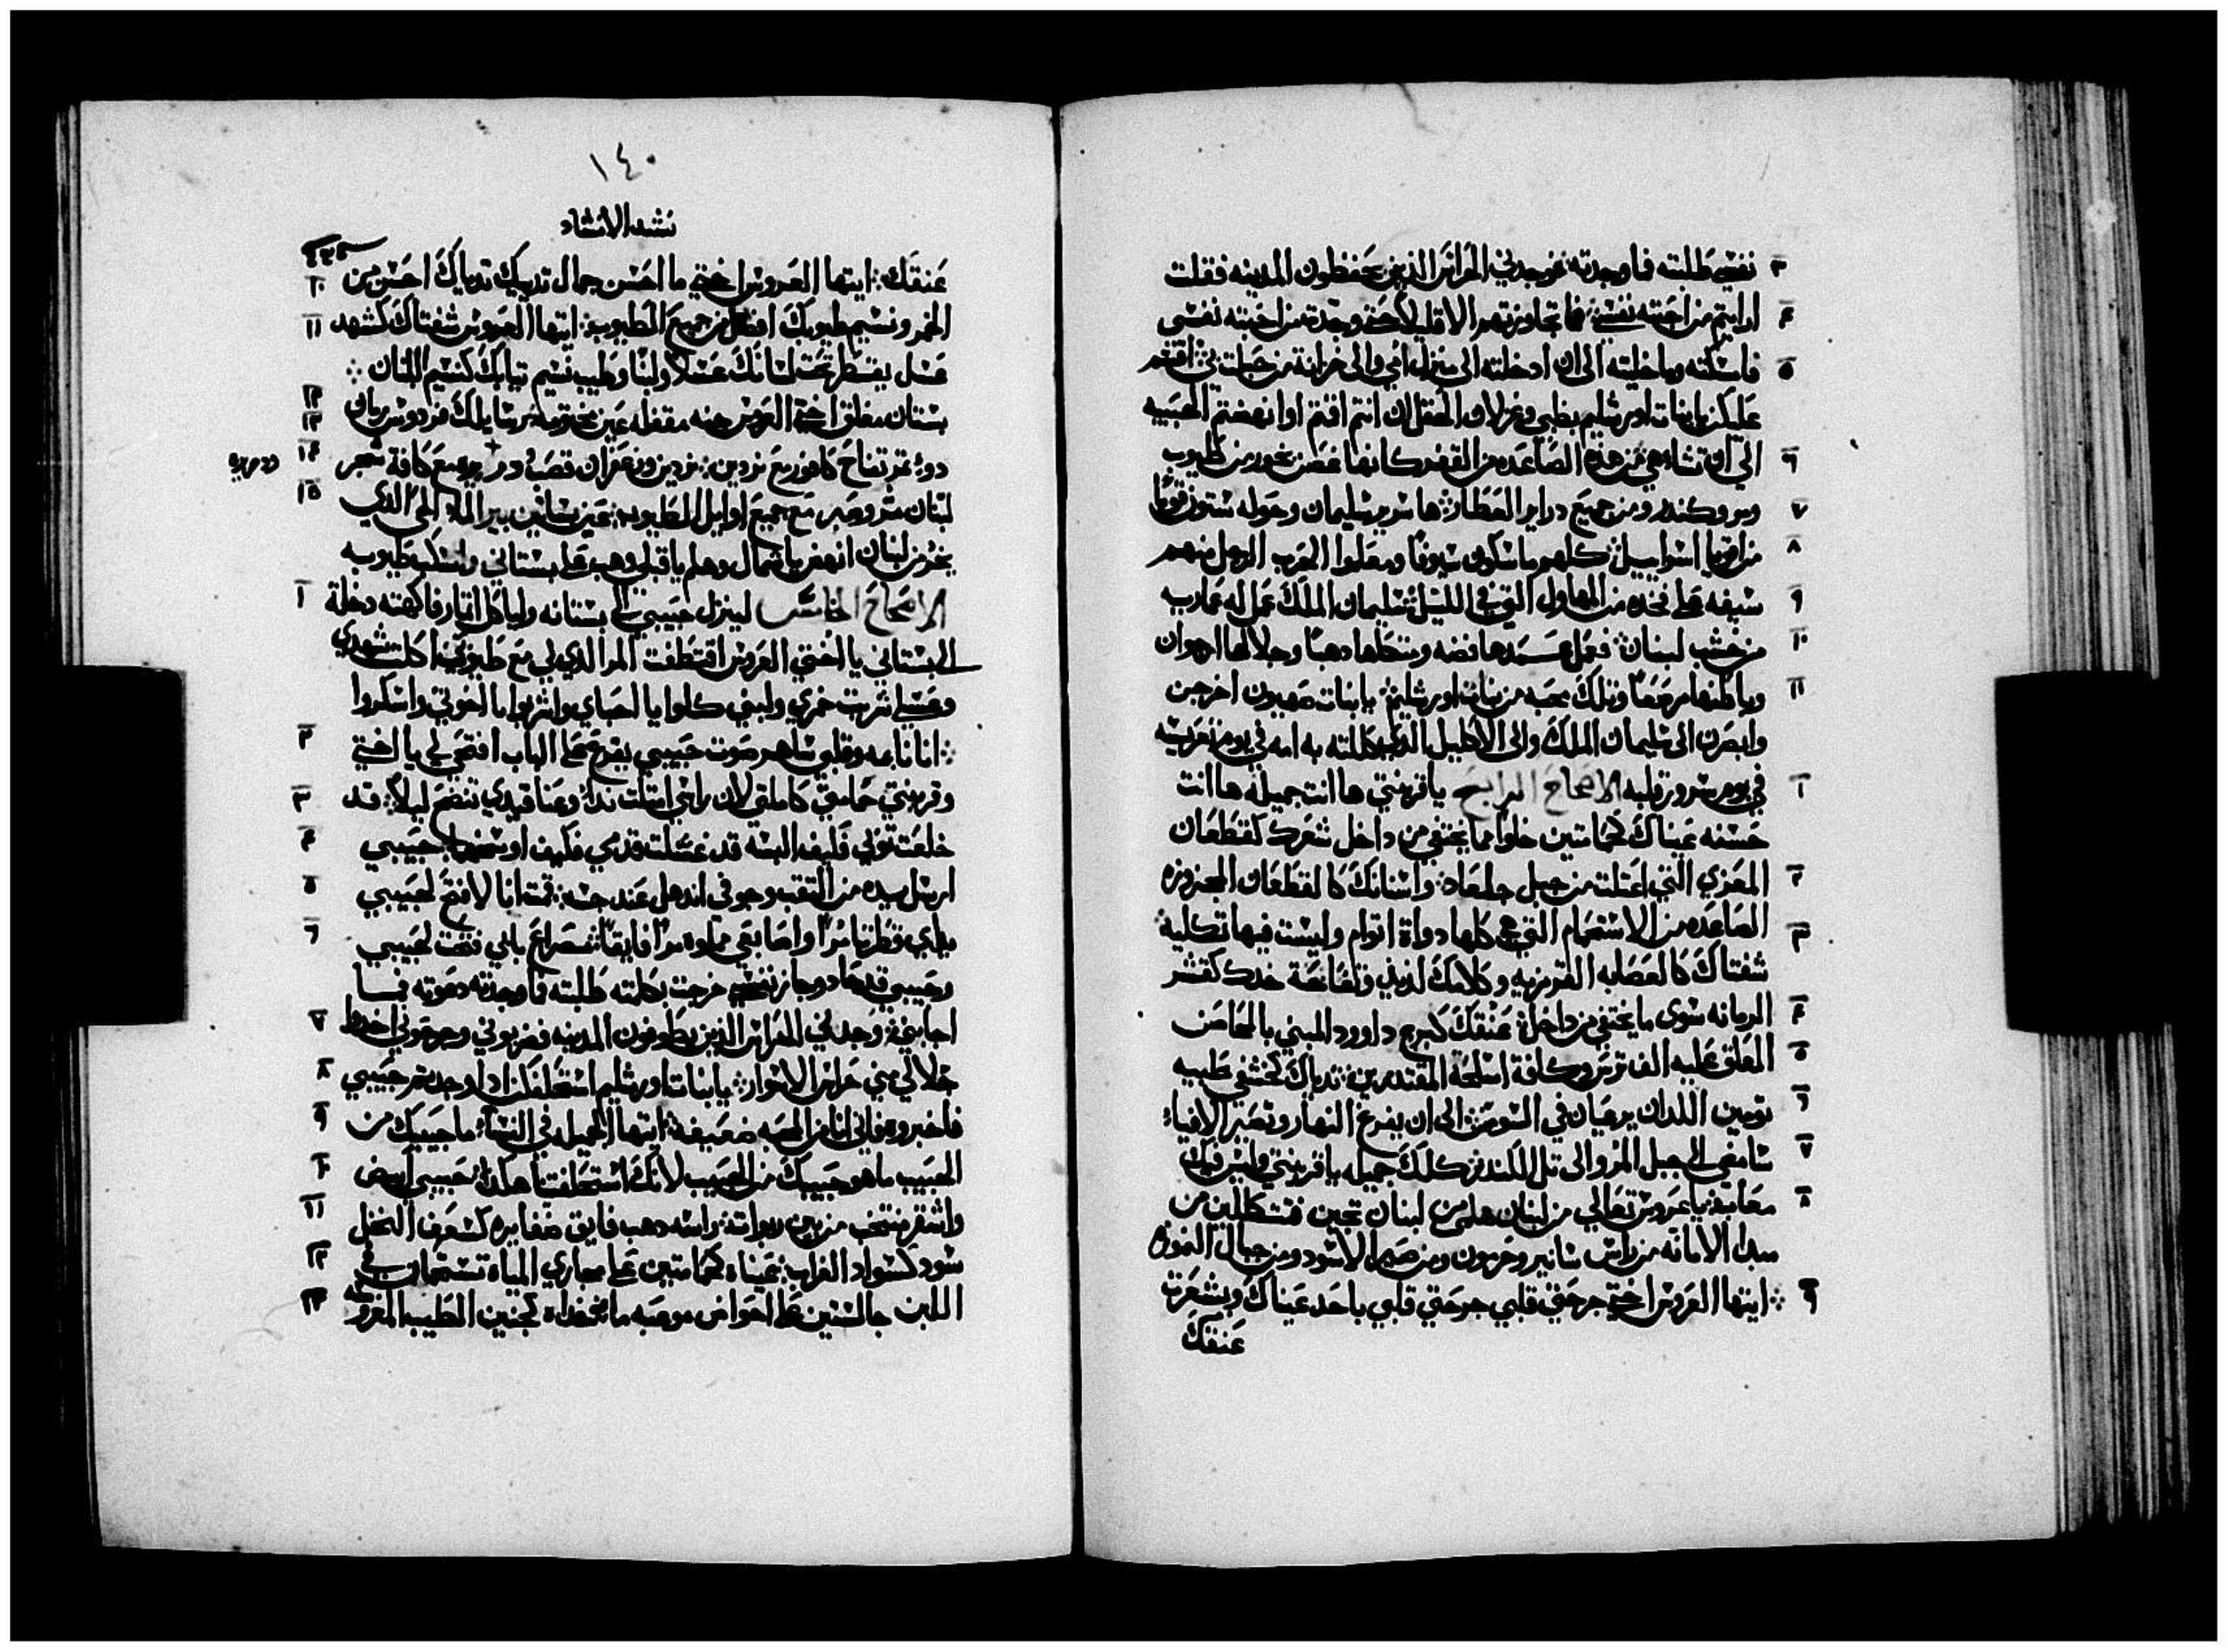 ٣ نفسي طلبته فما وجدته فوجدني الحراس الذين يحفظون المدينه فقلت
٤ ارايتم من احبته نفسي فما تجاوزتهم الا قليلا حتى وجدت من احبته نفسي
٥ فامسكته وما خليته الى ان ادخلته الى منزل امي والى خزانة من حبلت بي اقسم
عليكن يا بنات اورشليم بظبي وغزلان الحقل ان انتم اقمتم او انهضتم الحبيبه
٦ الى ان تشاء هي من هذه الصاعده من القفر كانها غصن بخور من طيوب
٧ ومر وكندر ومن جميع دراير العطار ها سرير سليمان وحوله ستون قويا
٨ من اقويا اسراييل كلهم ماسكون سيوفا ومعلموا الحرب الرجل منهم
٩ سيفه على فخده من المهاول التي في الليل سليمان الملك عمل له عماريه
١٠ من خشب لبنان فعمل عمدها فضه ومتكاها دهبا وجلالها ارجوان
١١ وباطنها مرصعا وتلك محبه من بنات اورشليم يا بنات صهيون اخرجن
وابصرن الى سليمان الملك والى الاكليل الذي كللته به امه في يوم تعريسه
١ في يوم سرور قلبه الاصحاح الرابع يا قرينتي ها انت جميله ها انت
حسنه عيناك كحمامتين خلوا مما يختفي من داخل شعرك كقطعان
٢ المعزي التي اعتلت من جبل جلعاد واسنانك كالقطعان المجزوزه
٣ الصاعده من الاستحمام التي هي كلها دواة اتوام وليست فيها تكليه
شفتاك كالعصابه القرمزيه وكلامك لذيذ وتفاحة خدك كقشر
٤ الرمانه سوى ما يختفي من داخل عنقك كبرج داوود المبني بالمحاصن
٥ المعلق عليه الف ترس وكافة اسلحة المقتدرين ثدياك كخشفي ظبيه
٦ تومين اللدان يرعيان في السوسن الى ان يفرع النهار وتصير الافياء
٧ سامضي الى جبل المر والى تل الكندر كلك جميله يا قرينتي وليس فيك
٨ معابه يا عروس تعالي من لبنان هلمي من لبنان تجين فتتكللين من
مبدا الامانه من راس سانير وحرمون ومن صير الاسود ومن جبال النموره
٩ ايتها العروس اختي جرحتي قلبي جرحتي قلبي باحد عيناك وبشعرة
عنقك
١٤٠
نشد الانشاد
١٠ عنقك ايتها العروس اختي ما احسن جمال تدييك تدياك احسن من
١١ الخمر ونسيم طيوبك افضل من جميع الطيوب ايتها العروس شفتاك كشهد
عسل يقسطر تحت لسانك عسلا ولبنا وطيب نسيم تيابك كنسيم اللبنان
١٢ ١٣ بستان مغلق اختي العروس جنه مقفله عين مختومه رسايلك فردوس رمان
١٤ دو ثمر تفاح كافور مع نردين نردين وزعفران قصب در يره مع كافة شجر
١٥ لبنان مر وصبر مع جميع اوايل الطيوب عين بساتين بير الماء الحي الذي
يخر من لبنان انهض يا شمال وهلم يا قبلي وهب على بستاني وتسكب طيوبه
١ الاصحاح الخامس لينزل حبيبي الى بستانه ولياكل اثمار فاكهته دخلة
الى بستاني يا اختي العروس اقتطفت المر الذي لي مع طيوبي اكلت شهدي
وعسلي شربت خمري ولبني كلوا يا احباي واشربوا يا اخوتي واسكروا
٢ انا نايمه وقلبي ساهر صوت حبيبي يقرع على الباب افتحي لي يا اختي
٣ وقرينتي حمامتي كاملتي لان راسي امتلت نداء وعناقيدي تنضح ليلا قد
٤ خلعت توبي فكيف البسه قد غسلت قدمي فكيف اوسخهما حبيبي
٥ ارسل بيده من الثقب وجوفي اندهل عند جسه قمت انا لافتح لحبيبي
٦ يداي قطرتا مرا واصابعي مملوه مرا فايقا مصراع بابي فتحت لحبيبي
وحبيبي قد حاد وجاز نفسي خرجت بكلمته طلبته فما وجدته دعوته فما
٧ اجابني وجدني الحراس الذين يطوفون المدينه فضربوني وجرحوني اخدوا
٨ جلالي مني حراس الاسوار يا بنات اورشليم استحلفتكن ادا وجدتم حبيبي
٩ فاخبروه فاني انا من المحبه ضعيفه ايتها الجميله في النساء ما حبيبك من
١٠ الحبيب ما هو حبيبك من الحبيب لانك استحلفتنا هكذا حبيبي ابيض
١١ واشقر منتخب من بين ربواته راسه دهب فايق ضفايره كسعف النخل
١٢ سود كسواد الغراب عيناه كحمامتين على مجاري المياه تستحمان في
١٣ اللبن جالستين على احواض موعبه ما خداه كجنبين الطيب المعروكه